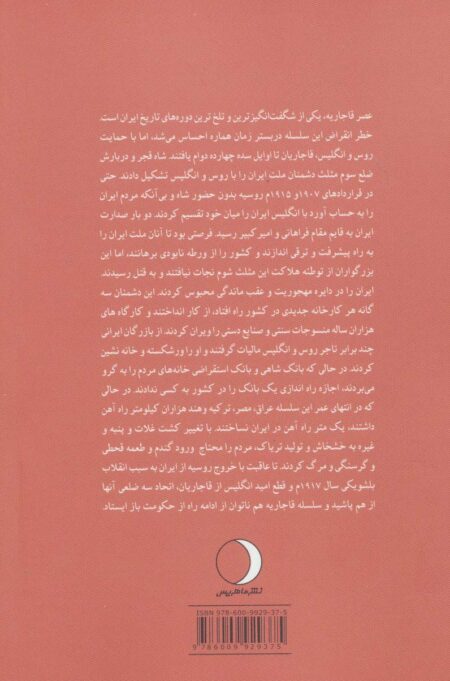 عصر قاجاریه، یکی از شگفت‌انگیزترین و تلخ ترین دوره‌های تاریخ ایران است.
خطر انقراض این سلسله دربستر زمان هماره احساس می‌شد، اما با حمایت
روس و انگلیس، قاجاریان تا اوایل سده چهارده دوام یافتند. شاه قجر و دربارش
ضلع سوم مثلث دشمنان ملت ایران را با روس و انگلیس تشکیل دادند. حتی
در قراردادهای ۱۹۰۷ و ۱۹۱۵م روسیه بدون حضور شاه و بی‌آنکه مردم ایران
را به حساب آورد با انگلیس ایران را میان خود تقسیم کردند. دو بار صدارت
ایران به قایم مقام فراهانی و امیر کبیر رسید. فرصتی بود تا آنان ملت ایران را
به راه پیشرفت و ترقی اندازند و کشور را از ورطه نابودی برهانند، اما این
بزرگواران از توطئه هلاکت این مثلث شوم نجات نیافتند و به قتل رسیدند.
ایران را در دایره مهجوریت و عقب ماندگی محبوس کردند. این دشمنان سه
گانه هر کارخانه جدیدی در کشور راه افتاد، از کار انداختند و کارگاه های
هزاران ساله منسوجات سنتی و صنایع دستی را ویران کردند. از بازرگان ایرانی
چند برابر تاجر روس و انگلیس مالیات گرفتند و او را ورشکسته و خانه نشین
کردند. در حالی که بانک شاهی و بانک استقراضی خانه‌های مردم را به گرو
می‌بردند، اجازه راه اندازی یک بانک را در کشور به کسی ندادند. در حالی
که در انتهای عمر این سلسله عراق، مصر، ترکیه و هند هزاران کیلومتر راه آهن
داشتند، یک متر راه آهن در ایران نساختند. با تغییر کشت غلات و پنبه و
غیره به خشخاش و تولید تریاک، مردم را محتاج ورود گندم و طعمه قحطی
و گرسنگی و مرگ کردند. تا عاقبت با خروج روسیه از ایران به سبب انقلاب
بلشویکی سال ۱۹۱۷م و قطع امید انگلیس از قاجاریان، اتحاد سه ضلعی آنها
از هم پاشید و سلسله قاجاریه هم ناتوان از ادامه راه از حکومت باز ایستاد.
نشر ماهریس
ISBN 978-600-9929-37-5
9786009929375